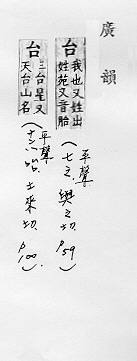 廣韻
台 我也又姓出
姓苑又音胎
平聲
(七之 與之切 p59)
台 三台星又
天台山名
平聲
(十六咍 土來切 p100)